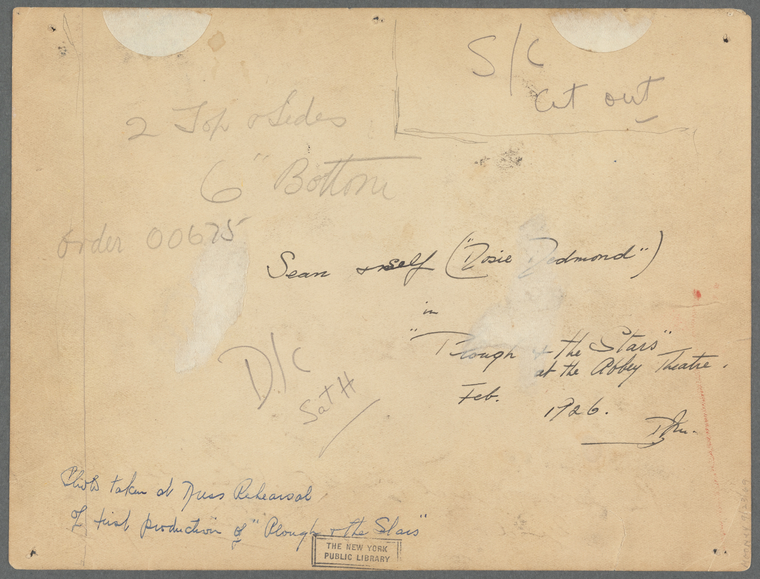 S/C
Cut out
2 Top & Sides
6" Bottom
order 00675
Sean & self ("Rosie Redmond")
in
"Plough & the Stars"
at the Abbey Theatre.
Feb. 1926.
D/C
Sat H
Photo taken at Dress Rehearsal
of first production of "Plough & the Stars"
THE NEW YORK
PUBLIC LIBRARY